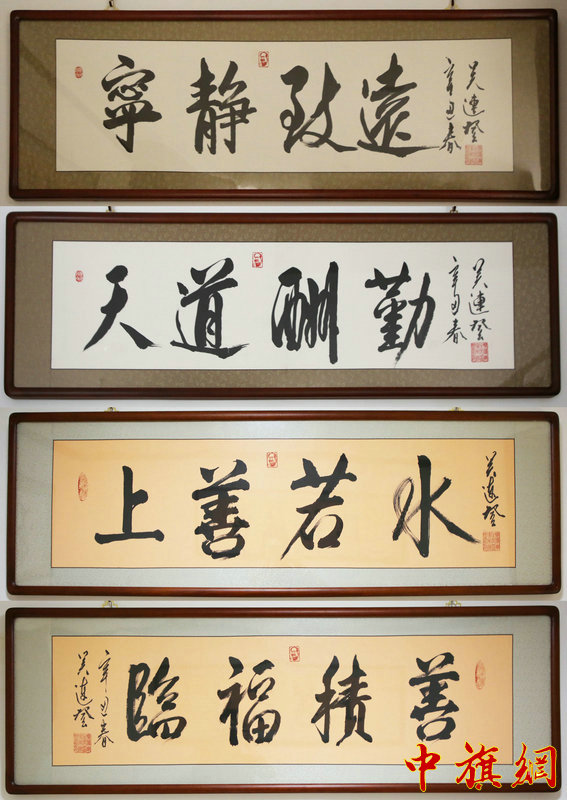 寧靜致遠
辛丑春
吴連登
天道酬勤
辛丑春
吴連登
上善若水
吴連登
善積福臨
辛丑春
吴連登
中旗網